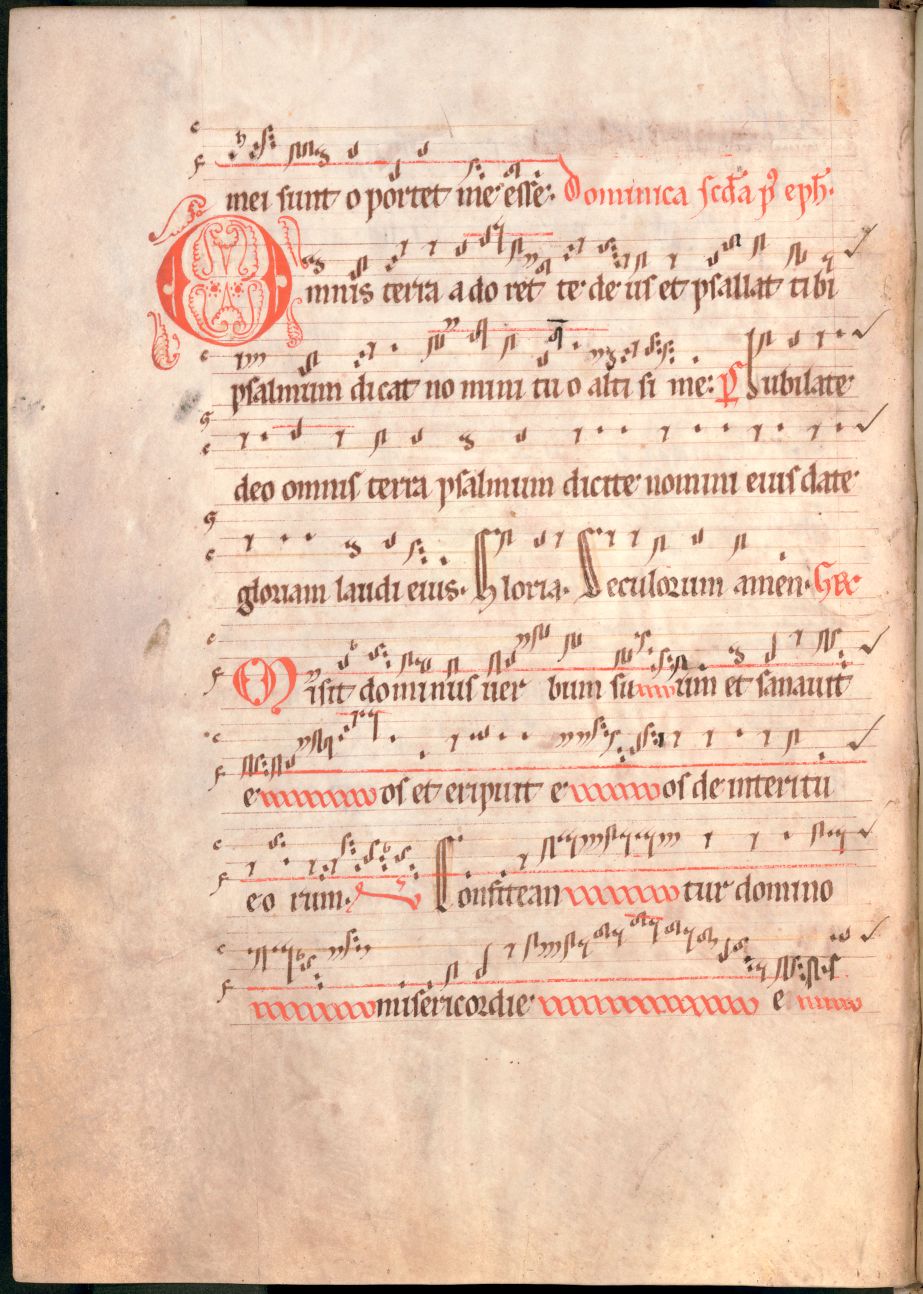 mei sunt o portet me esse. Dominica scd̄a p̄ eph̄.
Omnis terra a do ret te de us et psallat tibi
psalmum dicat no mini tu o alti si me. ps Iubilate
deo omnis terra psalmum dicite nomini eius date
gloriam laudi eius. Gloria. Seculorum amen. GR
Misit dominus uer bum su um et sanauit
e os et eripuit e os de interitu
eo rum. Confitean tur domino
misericordie e